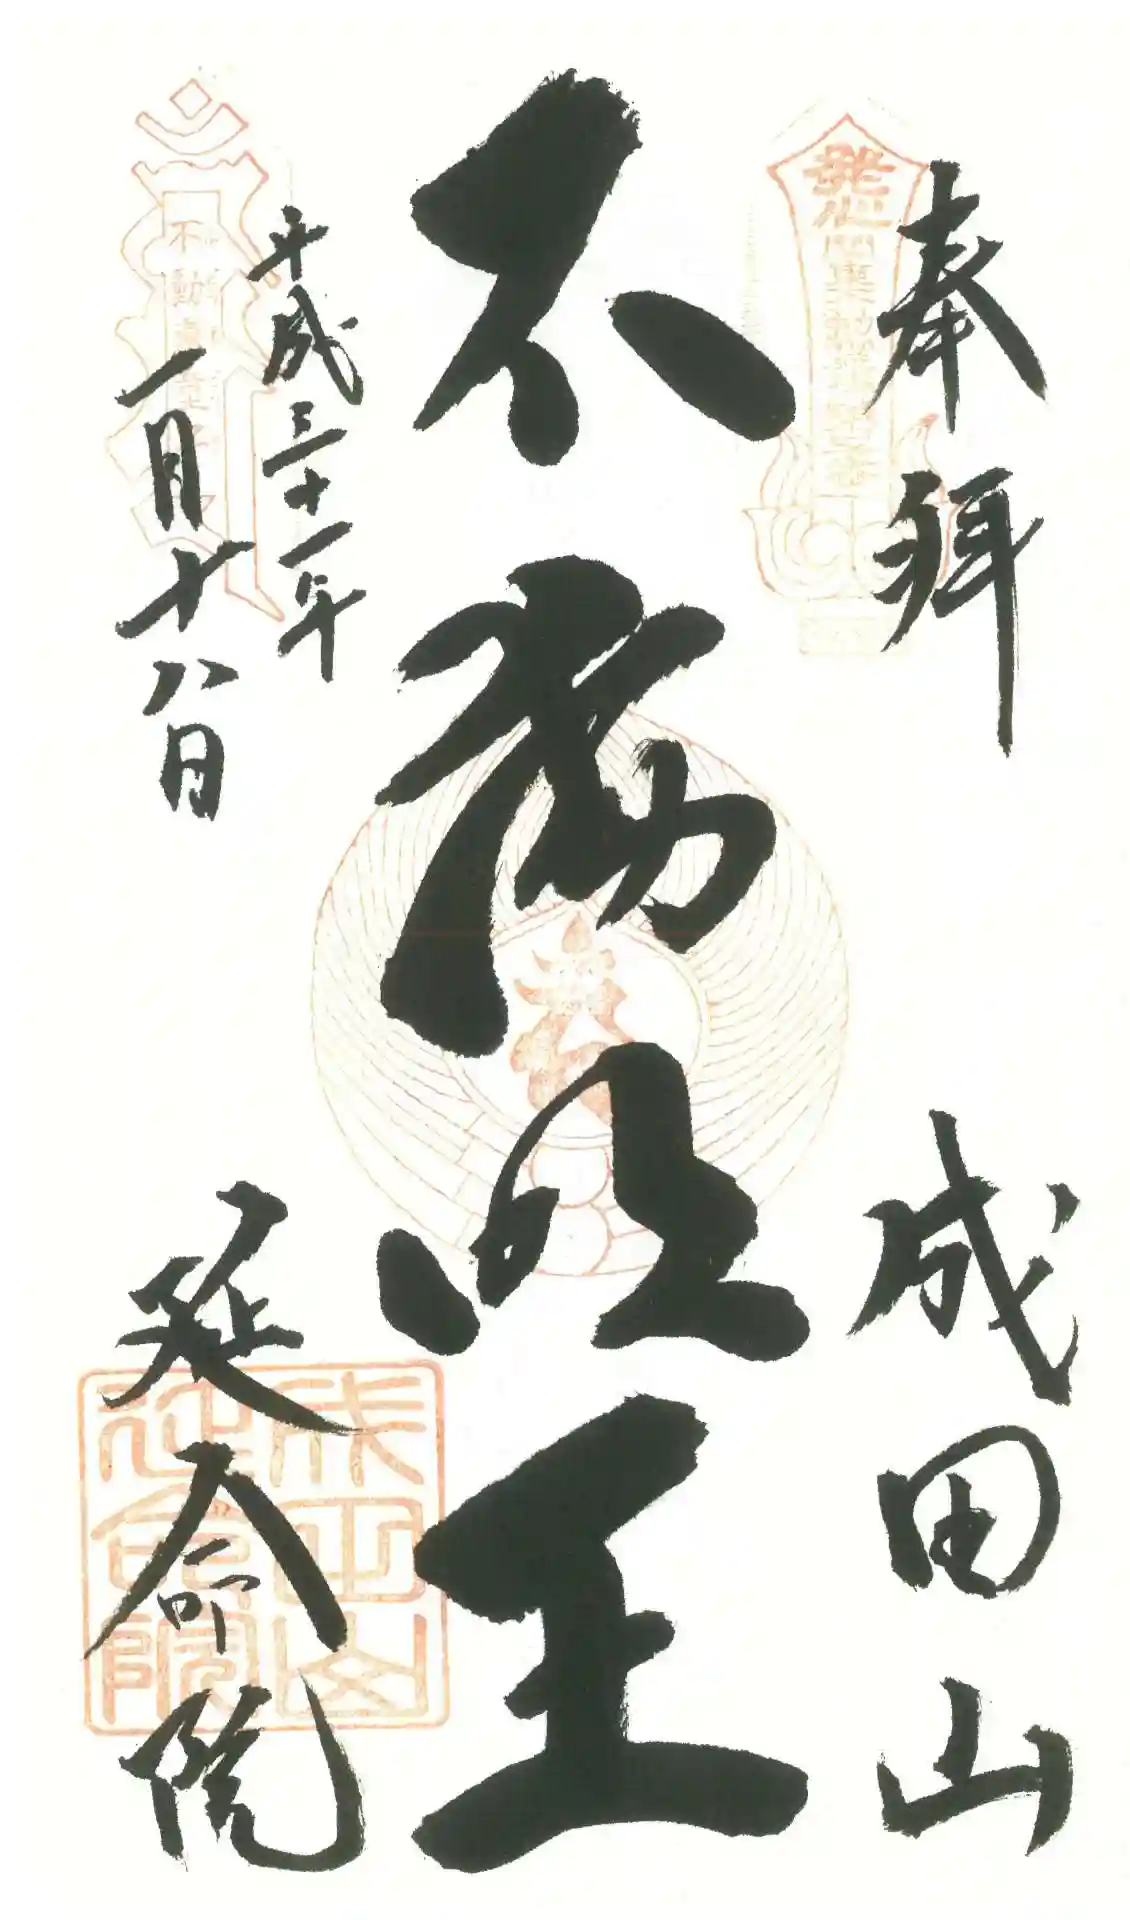 奉拝
成田山
不動明王
平成三十一年
一月十八日
延命院
成田山
延命院